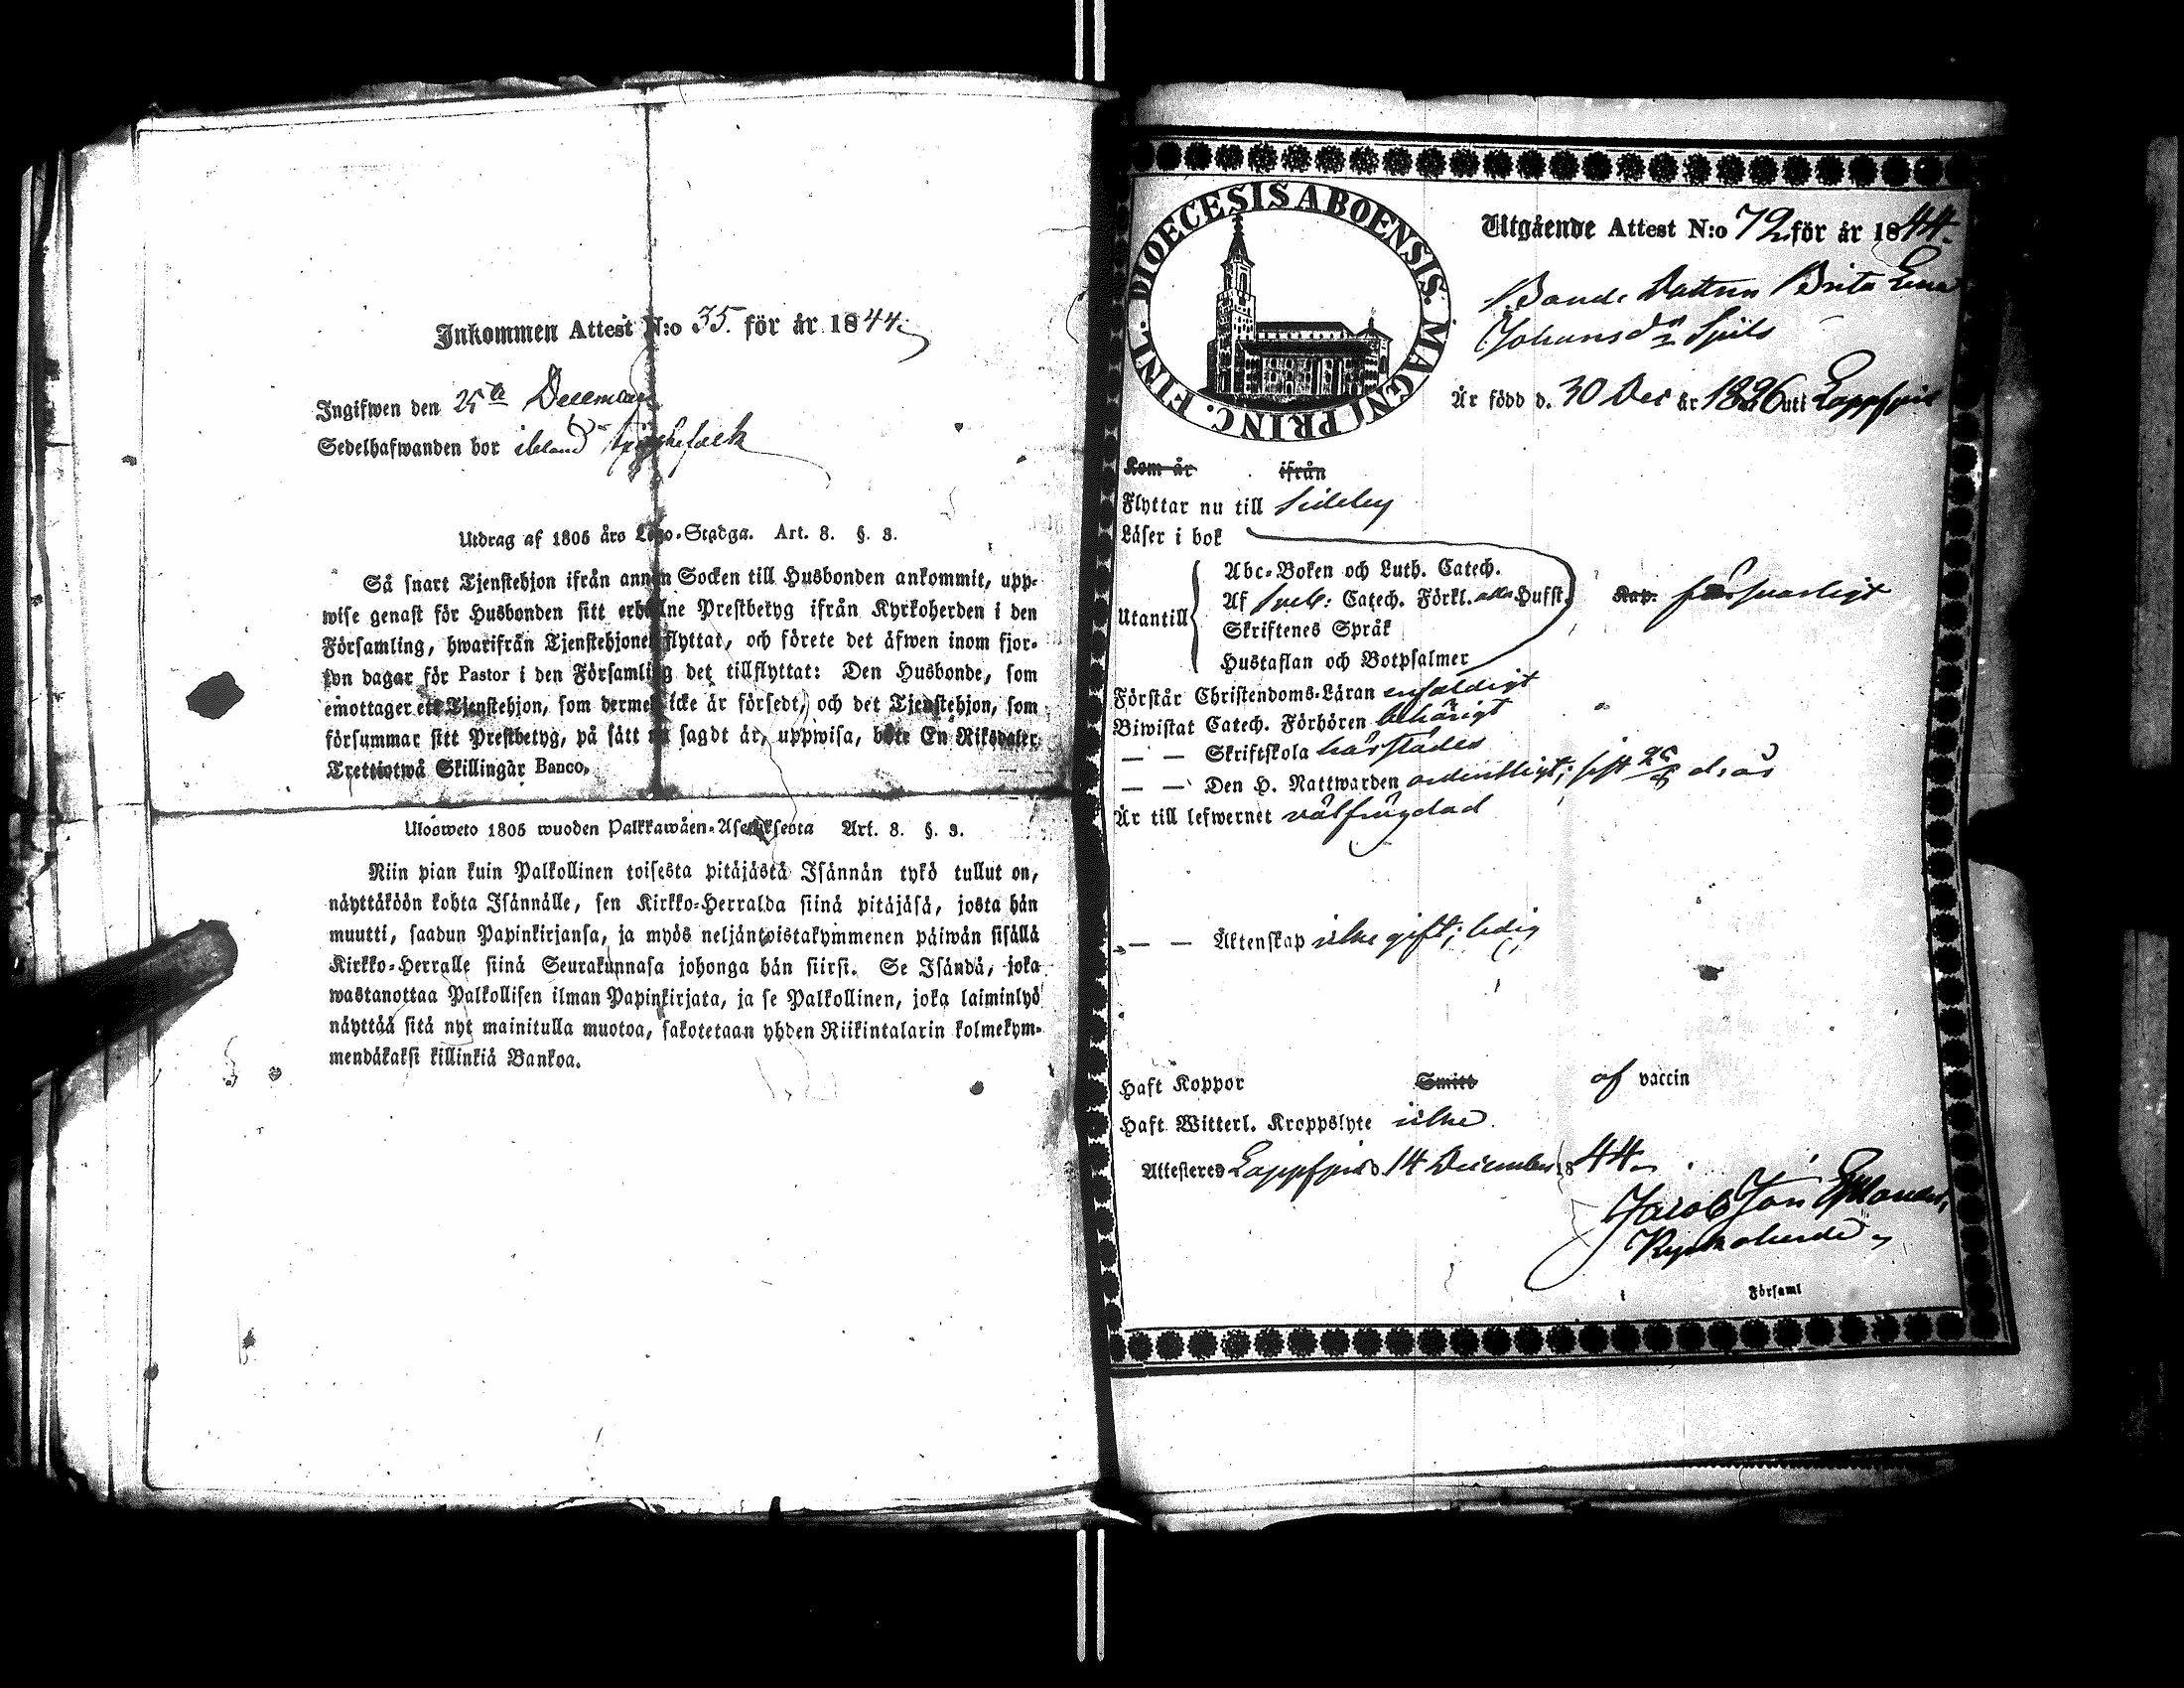 Inkommen Attest N:o 35. för år 1844.
Ingifwen den 25te December
Sedelhafwanden bor ibland
Utdrag af 1805 års Lego-Stadga. Art. 8. §. 3.
Så snart Tjenstehjon ifrån annan Socken till Husbonden ankommit, upp-
wise genast för Husbonden sitt erhållne Prestbetyg ifrån Kyrkoherden i den
Församling, hwarifrån Tjenstehjonet flyttat, och förete det äfwen inom fjor-
ton dagar för Pastor i den Församling det tillflyttat: Den Husbonde, som
emottager ett Tjenstehjon, som dermed icke är försedt, och det Tjenstehjon, som
försummar sitt Prestbetyg, på sätt nu sagdt är, uppwisa, böte En Riksdaler
Trettiotwå Skillingar Banco.
Ulosweto 1805 wuoden Palkkawäen-Asetuksesta Art. 8. §. 3.
Niin pian kuin Palkollinen toisesta pitäjästä Isännän tykö tullut on,
näyttäköön kohta Isännälle, sen Kirkko-Herralda siinä pitäjäsä, josta hän
muutti, saadun Papinkirjansa, ja myös neljäntoistakymmenen päiwän sisällä
Kirkko-Herralle siinä Seurakunnasa johonga hän siirsi. Se Isändä, joka
wastanottaa Palkollisen ilman Papinkirjata, ja se Palkollinen, joka laiminlyö
näyttää sitä nyt mainitulla muotoa, sakotetaan yhden Riikintalarin kolmekym-
mendäkaksi killinkiä Bankoa.
DIOECESIS ABOENSIS. MAGNI PRINC. FINL.
Utgående Attest N:o 72 för år 1844.
Bonde Dottren Brita Lena
Johansdr Spils
Är född d. 30 Dec år 1826 uti Lappfjerd
Kom år ifrån
Flyttar nu till Sideby
Läser i bok
Utantill
Abc-Boken och Luth. Catech.
Af Sveb: Catech. Förkl. Hufst.
Skriftenes Språk
Hustaflan och Botpsalmer
Kap. försvarligt
Förstår Christendoms-Läran enfaldigt
Biwistat Catech. Förhören behörigt
— — Skriftskola härstädes
— — Den H. Nattwarden ordentligt; sist d:å:
Är till lefwernet välfrägdad
— — Äktenskap icke gift; ledig
Haft Koppor Smitt af vaccin
Haft Witterl. Kroppslyte icke
Attesteres Lappfjerd d. 14 December 1844.
Jacob Jon
Kyrkoherde
i Församl